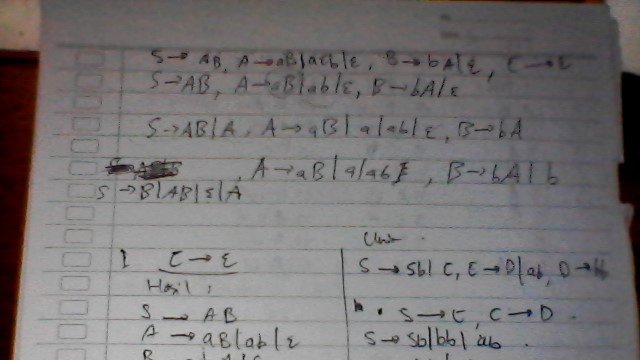 S → AB, A → aB|acb|ε, B → bA|ε, C → ε
S → AB, A → aB|ab|ε, B → bA|ε
S → AB|A, A → aB|a|ab|ε, B → bA
, A → aB|a|ab, B → bA|b
S → B|AB|ε|A
1 C → ε
Hasil :
S → AB
A → aB|ab|ε
Unit
S → Sb|C, C → D|ab, D →
S → C, C → D.
S → Sb|bb|ab